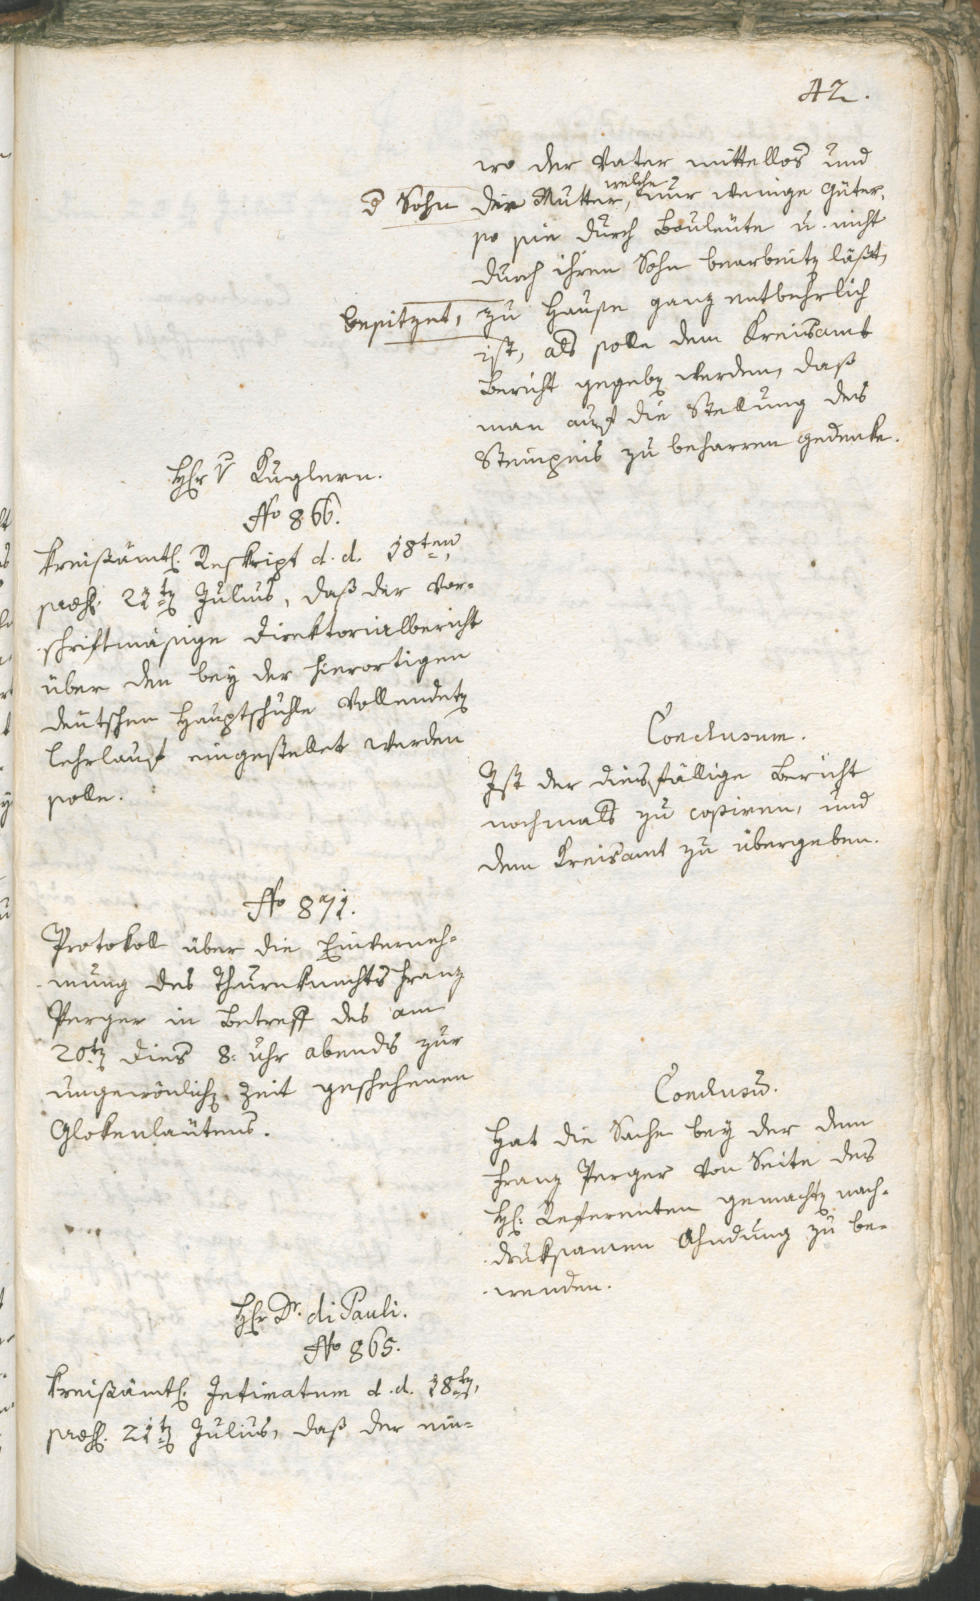 42.
wo der Vater mittellos und
der Sohn der Mutter, welche nur wenige Güter,
so sie durch Bauleute u. nicht
durch ihren Sohn bearbeiten läßt,
besitzet, zu Hause ganz entbehrlich
ist, als solle dem Kreisamt
Bericht gegeben werden, daß
man auf die Stellung des
zu beharren gedenke.
Hr v Kuglern.
No 866.
Kreisämtl. Reskript d. d. 18ten,
praes. 21ten Julius, daß der vor-
schriftmäsige Direktorialbericht
über den bey der hierortigen
deutschen Hauptschuhle vollendeten
Lehrlauf eingestellet werden
solle.
Conclusum.
Ist der diesfällige Bericht
nochmals zu copiren, und
dem Kreisamt zu übergeben.
No 871.
Protokoll über die Einverneh-
mung des Thurnknechts Franz
Perger in Betreff des am
20ten dies 8. Uhr abends zur
ungewönlichen Zeit geschehenen
Glokenläutens.
Conclusum.
Hat die Sache bey der dem
Franz Perger von Seite des
H. Referenten gemachten nach-
druksamen Ahndung zu be-
wenden.
Hr Dr. di Pauli.
No 865.
Kreisämtl. Intimatum d. d. 18ten,
praes. 21ten Julius, daß der ein-